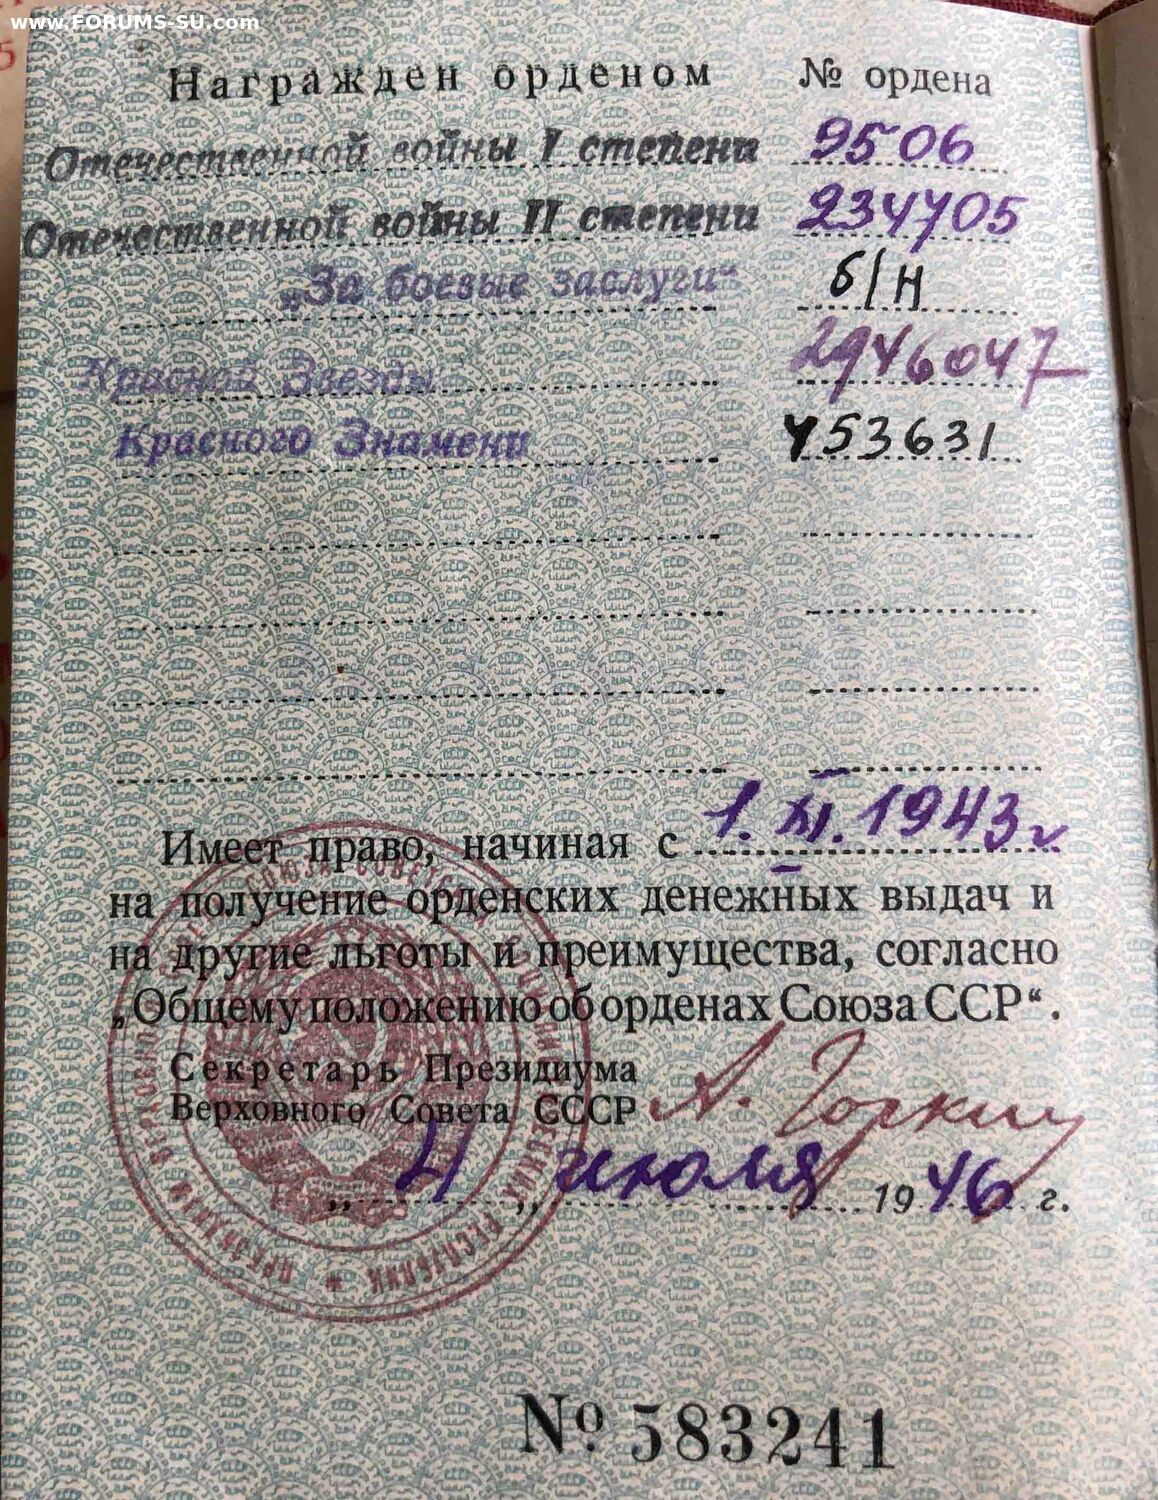 www.FORUMS-SU.com
Награжден орденом № ордена
Отечественной войны I степени 9506
Отечественной войны II степени 234705
„За боевые заслуги“ б/н
Красной Звезды 2946047
Красного Знамени 453631
Имеет право, начиная с 1.XI.1943г
на получение орденских денежных выдач и
на другие льготы и преимущества, согласно
„Общему положению об орденах Союза ССР“.
Секретарь Президиума
Верховного Совета СССР А. Горкин
„4„ июля 1946 г.
№ 583241